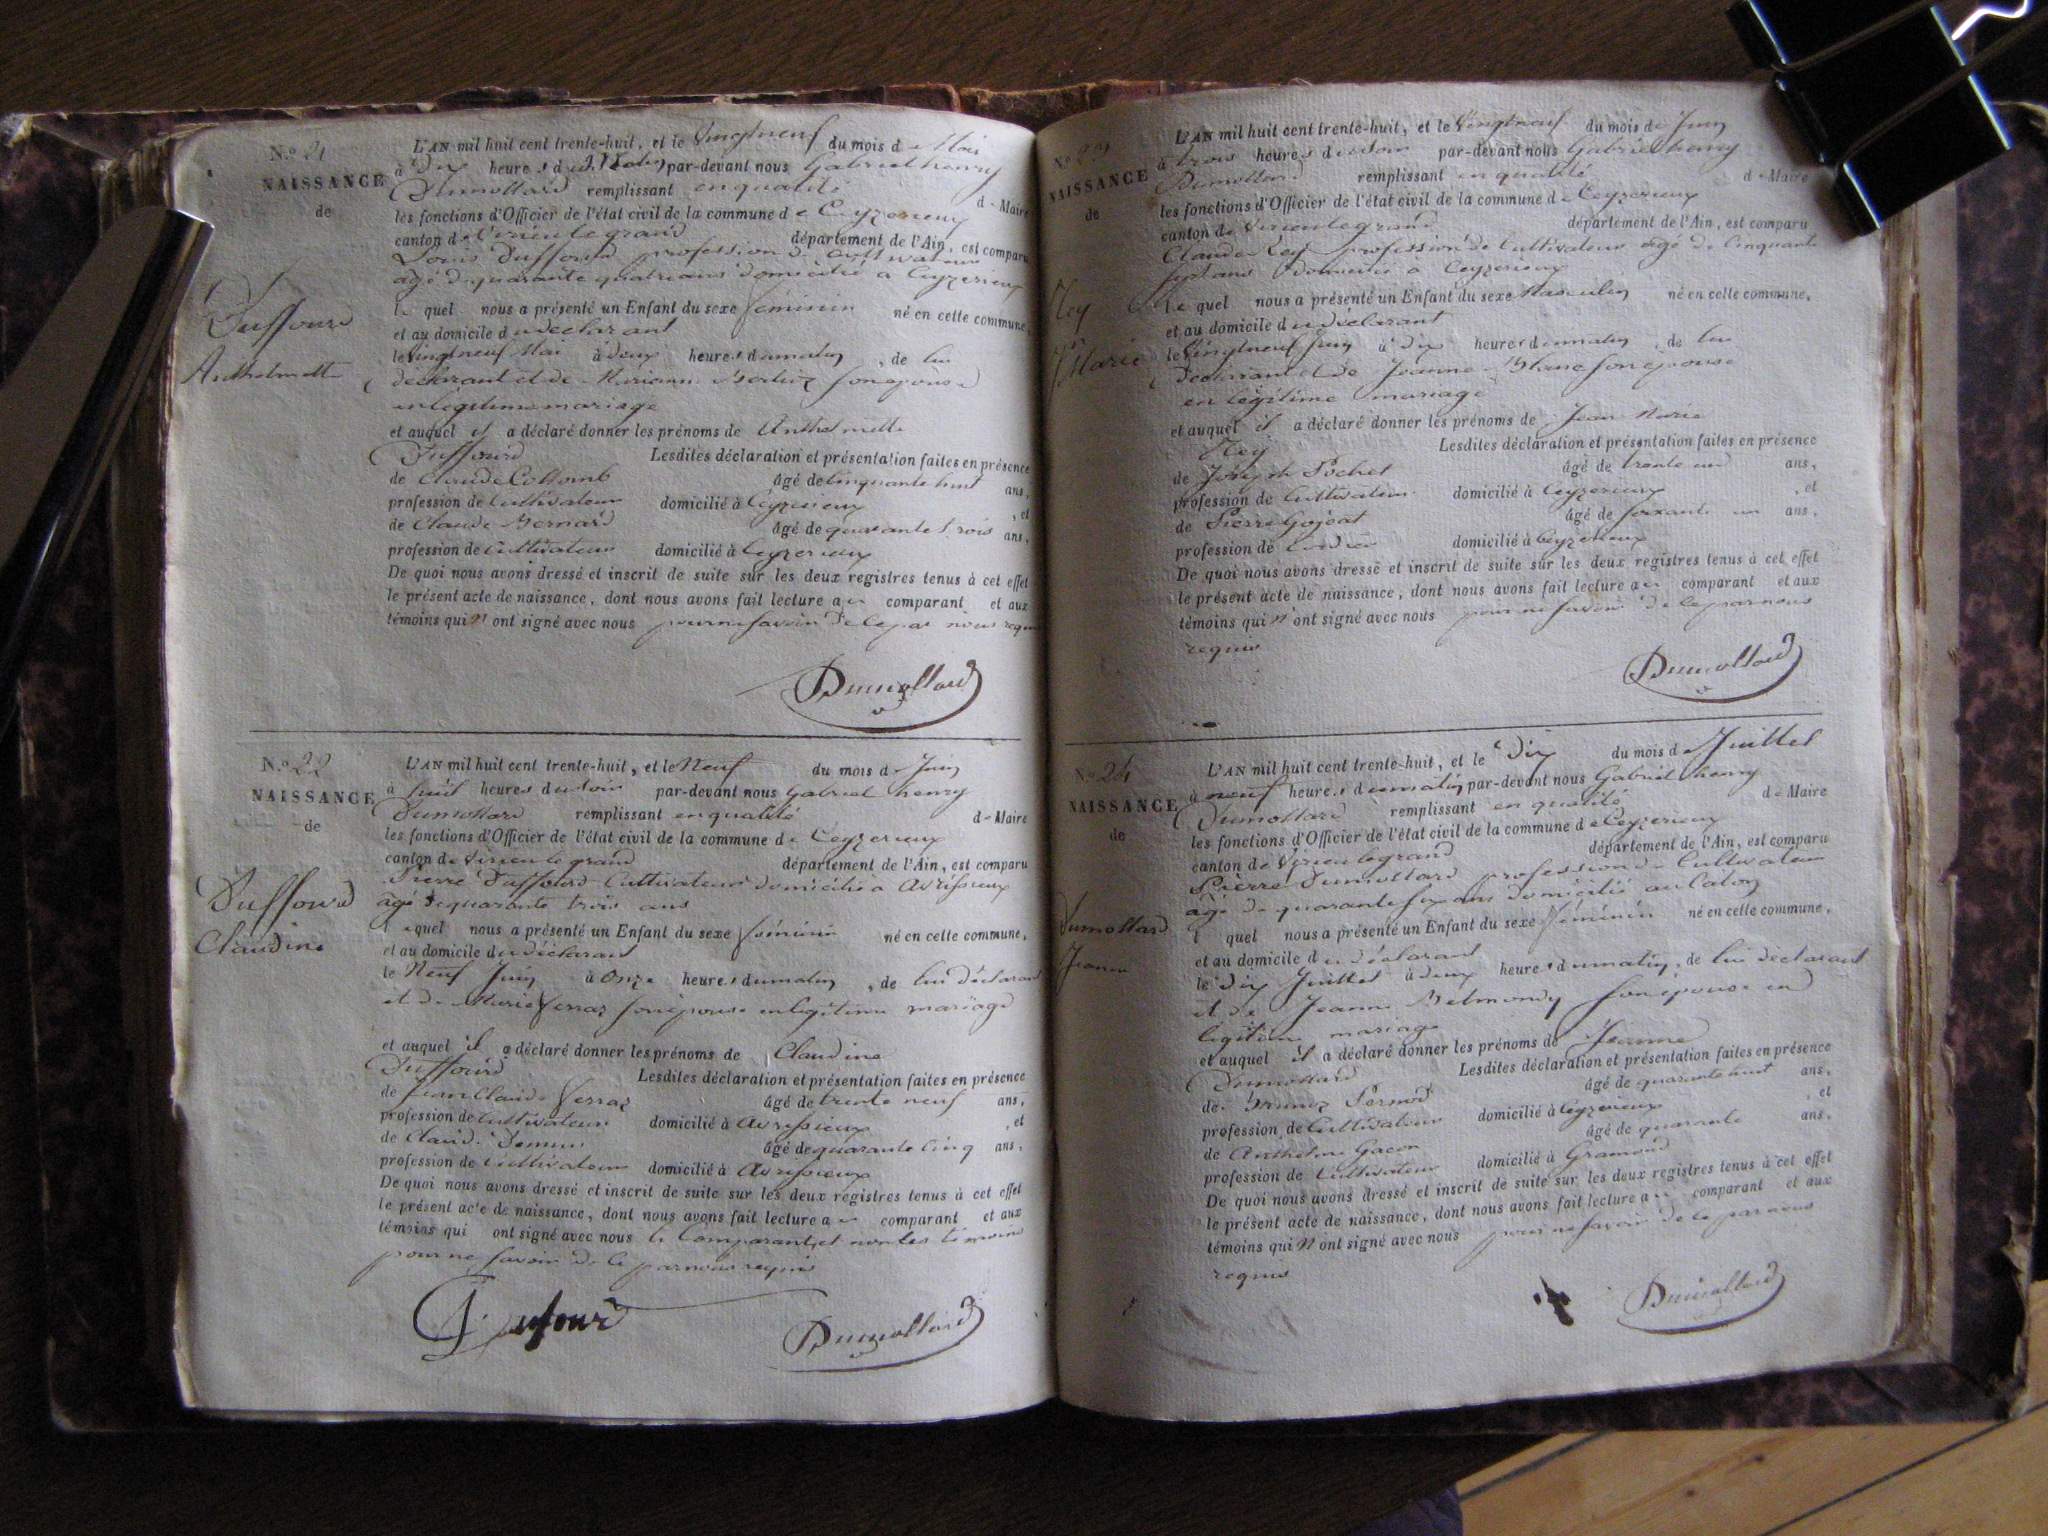 N.o 21
NAISSANCE
de
Duffourd
Anthelmette
L'AN mil huit cent trente-huit, et le Vingtneuf du mois de Mai
à Dix heures du Matin par-devant nous Gabriel henry
Dumollard remplissant en qualité de Maire
les fonctions d'Officier de l'état civil de la commune de Ceyzerieux
canton de Virieu le grand département de l'Ain, est comparu
Louis Duffourd profession de Cultivateur
âgé de quarante quatre ans domicilié a Ceyzerieux
le quel nous a présenté un Enfant du sexe féminin né en cette commune,
et au domicile du déclarant
le Vingtneuf Mai à deux heures du matin, de lui
déclarant et de son épouse
en légitime mariage
et auquel il a déclaré donner les prénoms de Anthelmette
Duffourd Lesdites déclaration et présentation faites en présence
de Claude Collomb âgé de Cinquante huit ans,
profession de Cultivateur domicilié à Ceyzerieux, et
de Claude Bernard âgé de quarante trois ans,
profession de Cultivateur domicilié à Ceyzerieux
De quoi nous avons dressé et inscrit de suite sur les deux registres tenus à cet effet
le présent acte de naissance, dont nous avons fait lecture au comparant et aux
témoins qui n'ont signé avec nous pour ne savoir de ce par nous requis
Dumollard
N.o 22
NAISSANCE
de
Duffourd
Claudine
L'AN mil huit cent trente-huit, et le Neuf du mois de Juin
à huit heures du soir par-devant nous Gabriel henry
Dumollard remplissant en qualité de Maire
les fonctions d'Officier de l'état civil de la commune de Ceyzerieux
canton de Virieu le grand département de l'Ain, est comparu
Pierre Duffourd Cultivateur domicilié à Avrissieux
âgé de quarante trois ans
lequel nous a présenté un Enfant du sexe féminin né en cette commune,
et au domicile du déclarant
le Neuf Juin à Onze heures du matin, de lui déclarant
et de Marie Verraz son épouse en légitime mariage
et auquel il a déclaré donner les prénoms de Claudine
Duffourd Lesdites déclaration et présentation faites en présence
de Jean Claude Verraz âgé de trente neuf ans,
profession de Cultivateur domicilié à Avrissieux, et
de Claude âgé de quarante cinq ans,
profession de Cultivateur domicilié à Avrissieux
De quoi nous avons dressé et inscrit de suite sur les deux registres tenus à cet effet
le présent acte de naissance, dont nous avons fait lecture au comparant et aux
témoins qui ont signé avec nous le Comparant, et non les témoins
pour ne savoir de ce par nous requis
Dufourd
Dumollard
N.o 23
NAISSANCE
de
Rey
Jn Marie
L'AN mil huit cent trente-huit, et le Vingtneuf du mois de Juin
à trois heures du soir par-devant nous Gabriel henry
Dumollard remplissant en qualité de Maire
les fonctions d'Officier de l'état civil de la commune de Ceyzerieux
canton de Virieu le grand département de l'Ain, est comparu
Claude Rey profession de Cultivateur âgé de Cinquante
sept ans domicilié à Ceyzerieux
le quel nous a présenté un Enfant du sexe Masculin né en cette commune,
et au domicile du déclarant
le Vingtneuf Juin à Dix heures du matin, de lui
déclarant et de Jeanne Blanc son épouse
en légitime mariage
et auquel il a déclaré donner les prénoms de Jean Marie
Rey Lesdites déclaration et présentation faites en présence
de Joseph Pochet âgé de trente un ans,
profession de Cultivateur domicilié à Ceyzerieux, et
de Pierre Gojoat âgé de soixante un ans,
profession de domicilié à Ceyzerieux
De quoi nous avons dressé et inscrit de suite sur les deux registres tenus à cet effet
le présent acte de naissance, dont nous avons fait lecture au comparant et aux
témoins qui n'ont signé avec nous pour ne savoir de ce par nous
requis
Dumollard
N.o 24
NAISSANCE
de
Dumollard
Jeanne
L'AN mil huit cent trente-huit, et le Dix du mois de Juillet
à neuf heures du matin par-devant nous Gabriel henry
Dumollard remplissant en qualité de Maire
les fonctions d'Officier de l'état civil de la commune de Ceyzerieux
canton de Virieu le grand département de l'Ain, est comparu
Pierre Dumollard profession de Cultivateur
âgé de quarante six ans domicilié au
l quel nous a présenté un Enfant du sexe féminin né en cette commune,
et au domicile du déclarant
le Dix Juillet à deux heures du matin, de lui déclarant
et de Jeanne Belmondy son épouse en
légitime mariage
et auquel il a déclaré donner les prénoms de Jeanne
Dumollard Lesdites déclaration et présentation faites en présence
de Pernod âgé de quarante huit ans,
profession de Cultivateur domicilié à Ceyzerieux, et
de Anthelme Gacon âgé de quarante ans.
profession de Cultivateur domicilié à Gramond
De quoi nous avons dressé et inscrit de suite sur les deux registres tenus à cet effet
le présent acte de naissance, dont nous avons fait lecture au comparant et aux
témoins qui n'ont signé avec nous pour ne savoir de ce par nous
requis
Dumollard